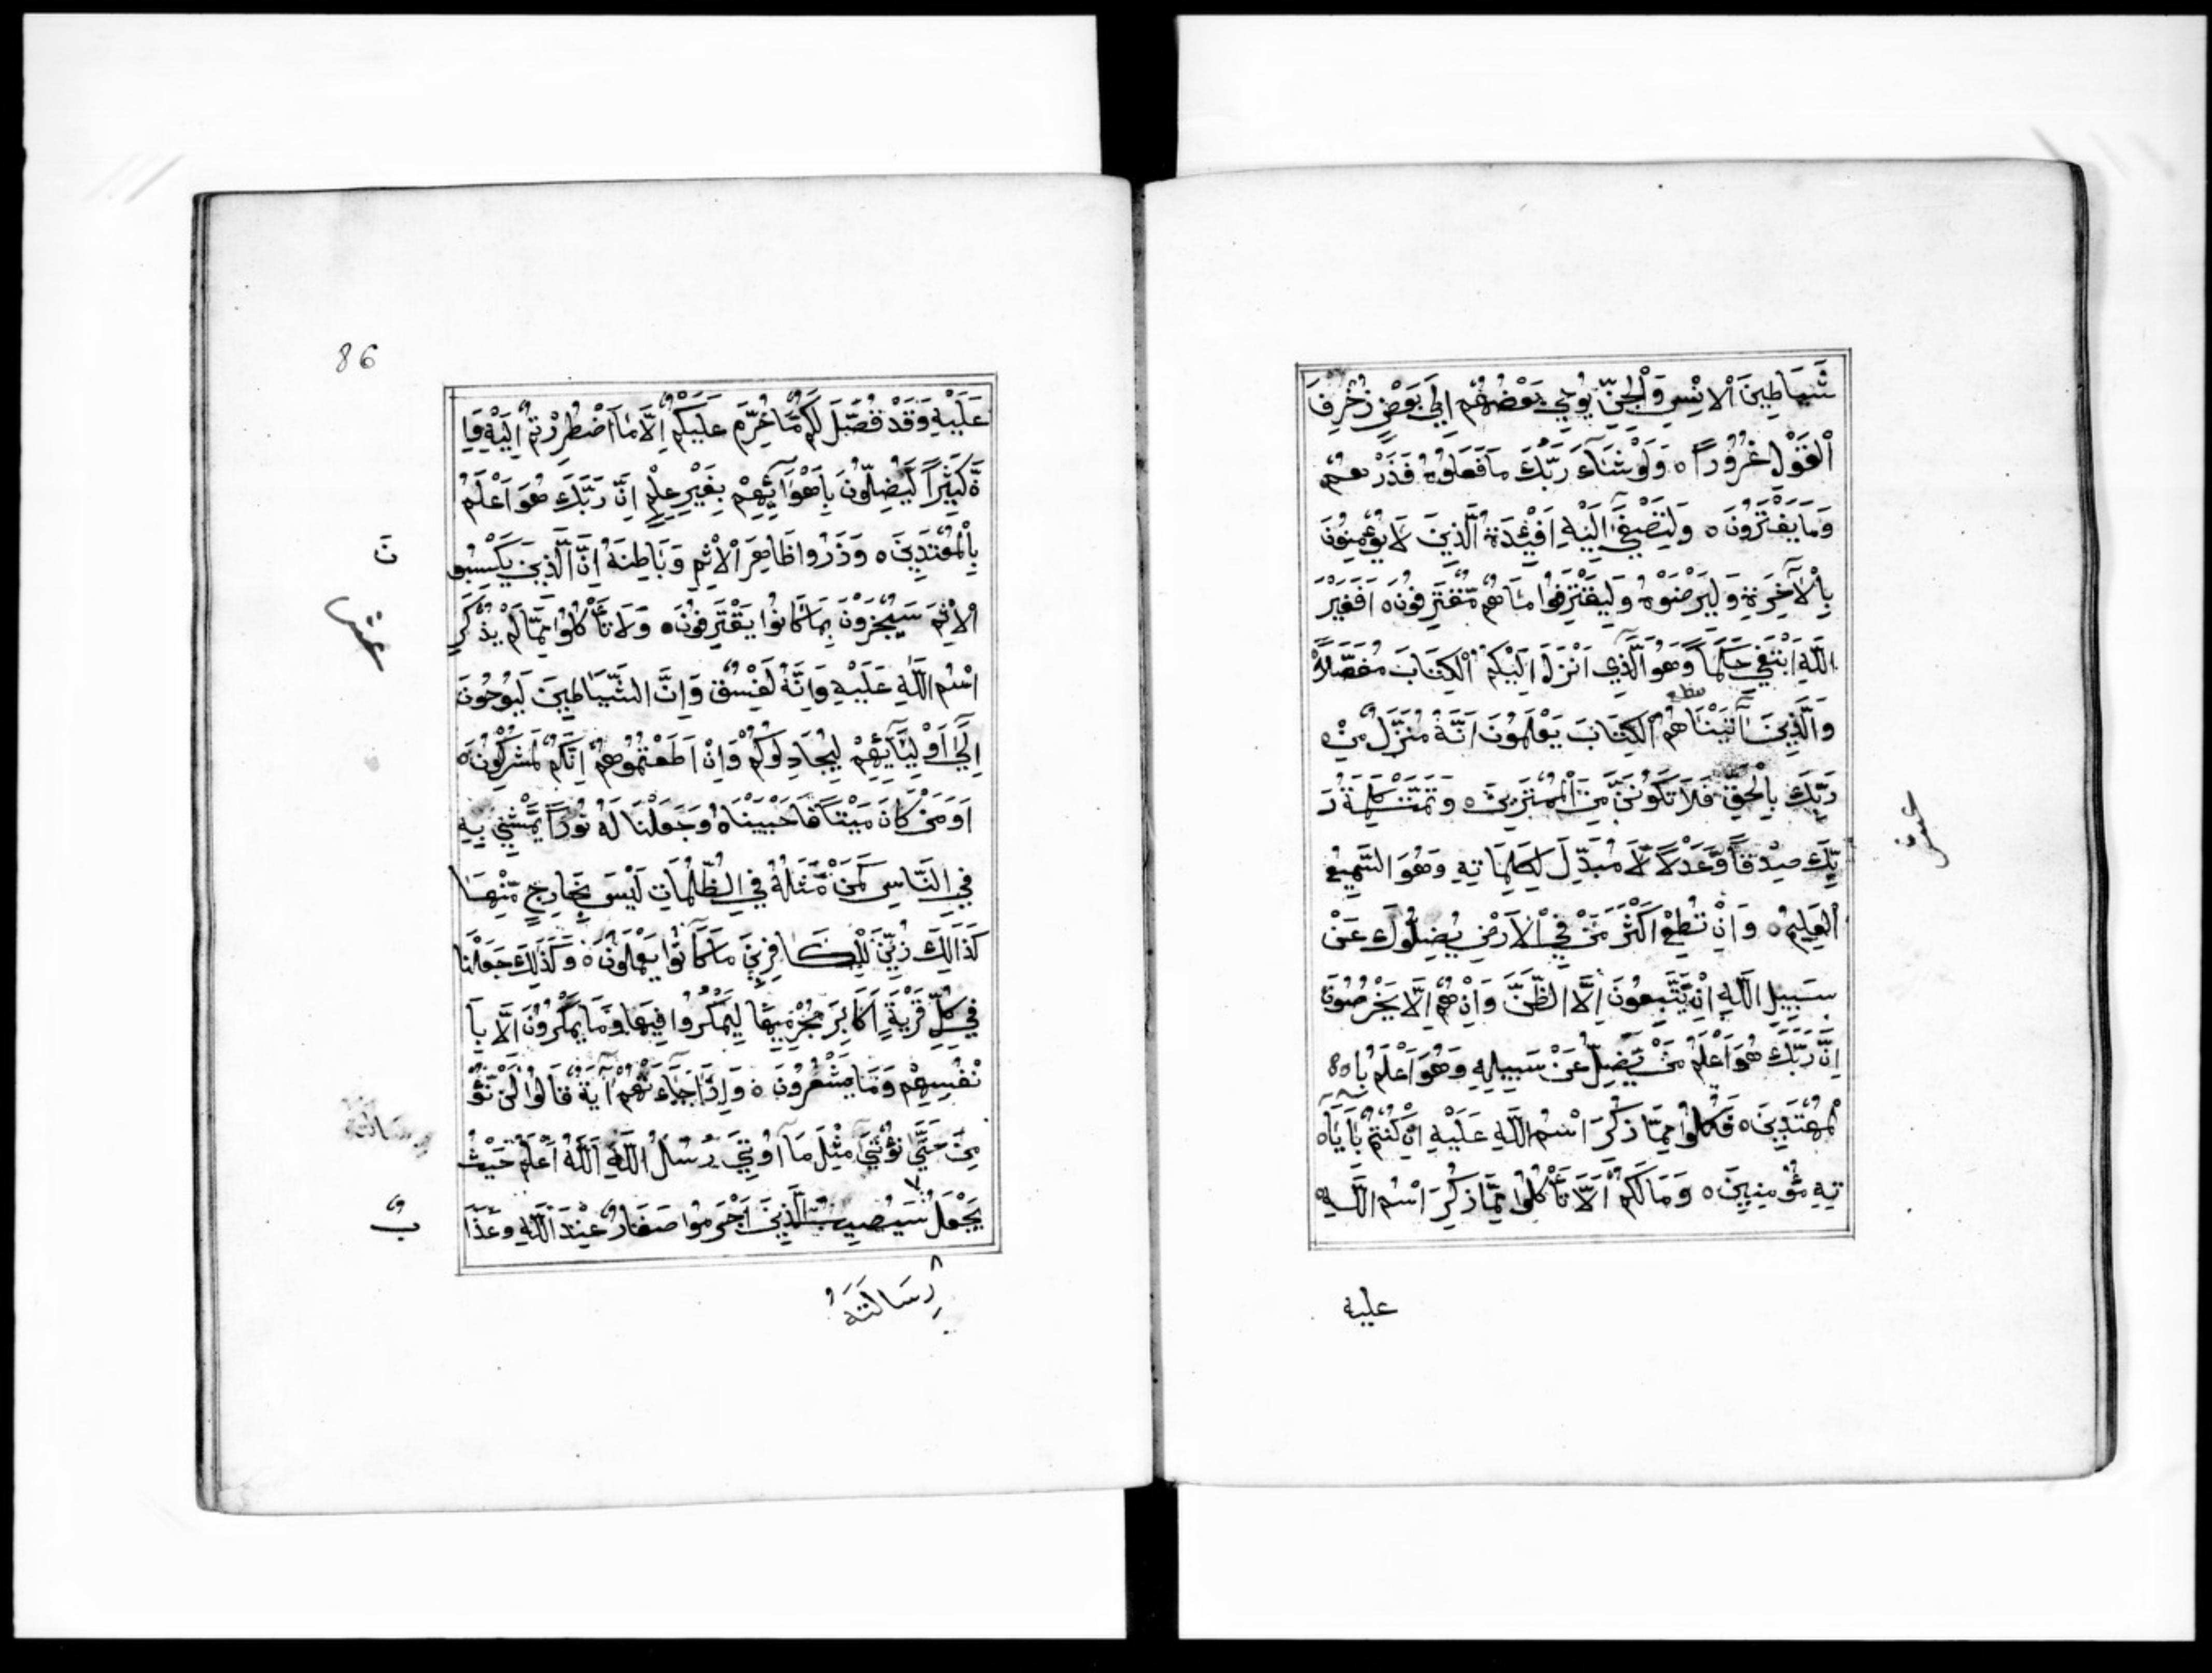 شَيَاطِينَ الْاِنْسِ وَالْجِنِّ يُوحِي بَعْضُهُمْ اِلَى بَعْضٍ زُخْرُفَ
الْقَوْلِ غُرُوْرًا ه وَلَوْ شَآءَ رَبُّكَ مَا فَعَلُوْهُ فَذَرْهُمْ
وَمَا يَفْتَرُوْنَ ه وَلِتَصْغَىٓ اِلَيْهِ اَفْئِدَةُ الَّذِيْنَ لَا يُؤْمِنُوْنَ
بِالْآخِرَةِ وَلِيَرْضَوْهُ وَلِيَقْتَرِفُوْا مَا هُمْ مُّقْتَرِفُوْنَ ه اَفَغَيْرَ
اللّٰهِ اَبْتَغِي حَكَمًا وَّهُوَ الَّذِي اَنْزَلَ اِلَيْكُمُ الْكِتَابَ مُفَصَّلًا
وَالَّذِيْنَ اٰتَيْنَاهُمُ الْكِتَابَ يَعْلَمُوْنَ اَنَّهُ مُنَزَّلٌ مِّنْ
رَبِّكَ بِالْحَقِّ فَلَا تَكُوْنَنَّ مِنَ الْمُمْتَرِيْنَ ه وَتَمَّتْ كَلِمَةُ رَ
بِّكَ صِدْقًا وَّعَدْلًا لَّا مُبَدِّلَ لِكَلِمَاتِهِ وَهُوَ السَّمِيْعُ
الْعَلِيْمُ ه وَاِنْ تُطِعْ اَكْثَرَ مَنْ فِي الْاَرْضِ يُضِلُّوْكَ عَنْ
سَبِيْلِ اللّٰهِ اِنْ يَّتَّبِعُوْنَ اِلَّا الظَّنَّ وَاِنْ هُمْ اِلَّا يَخْرُصُوْنَ
اِنَّ رَبَّكَ هُوَ اَعْلَمُ مَنْ يَّضِلُّ عَنْ سَبِيْلِهِ وَهُوَ اَعْلَمُ بِا
لْمُهْتَدِيْنَ ه فَكُلُوْا مِمَّا ذُكِرَ اسْمُ اللّٰهِ عَلَيْهِ اِنْ كُنْتُمْ بِاٰيَا
تِهِ مُؤْمِنِيْنَ ه وَمَا لَكُمْ اَلَّا تَأْكُلُوْا مِمَّا ذُكِرَ اسْمُ اللّٰهِ
عليه
86
عَلَيْهِ وَقَدْ فَصَّلَ لَكُمْ مَّا حُرِّمَ عَلَيْكُمْ اِلَّا مَا اضْطُرِرْتُمْ اِلَيْهِ وَاِ
نَّ كَثِيْرًا لَّيُضِلُّوْنَ بِاَهْوَآئِهِمْ بِغَيْرِ عِلْمٍ اِنَّ رَبَّكَ هُوَ اَعْلَمُ
بِالْمُعْتَدِيْنَ ه وَذَرُوْا ظَاهِرَ الْاِثْمِ وَبَاطِنَهُ اِنَّ الَّذِيْنَ يَكْسِبُو
نَ
الْاِثْمَ سَيُجْزَوْنَ بِمَا كَانُوْا يَقْتَرِفُوْنَ ه وَلَا تَأْكُلُوْا مِمَّا لَمْ يُذْكَرِ
اسْمُ اللّٰهِ عَلَيْهِ وَاِنَّهُ لَفِسْقٌ وَاِنَّ الشَّيَاطِيْنَ لَيُوْحُوْنَ
اِلَىٓ اَوْلِيَآئِهِمْ لِيُجَادِلُوْكُمْ وَاِنْ اَطَعْتُمُوْهُمْ اِنَّكُمْ لَمُشْرِكُوْنَ ه
اَوَمَنْ كَانَ مَيْتًا فَاَحْيَيْنَاهُ وَجَعَلْنَا لَهُ نُوْرًا يَّمْشِيْ بِهِ
فِي النَّاسِ كَمَنْ مَّثَلُهُ فِي الظُّلُمَاتِ لَيْسَ بِخَارِجٍ مِّنْهَا
كَذَالِكَ زُيِّنَ لِلْكَافِرِيْنَ مَا كَانُوْا يَعْمَلُوْنَ ه وَكَذَلِكَ جَعَلْنَا
فِي كُلِّ قَرْيَةٍ اَكَابِرَ مُجْرِمِيْهَا لِيَمْكُرُوْا فِيْهَا وَمَا يَمْكُرُوْنَ اِلَّا بِاَ
نْفُسِهِمْ وَمَا يَشْعُرُوْنَ ه وَاِذَا جَآءَتْهُمْ اٰيَةٌ قَالُوْا لَنْ نُّؤْ
مِنَ حَتَّى نُؤْتَى مِثْلَ مَآ اُوْتِيَ رُسُلُ اللّٰهِ اَللّٰهُ اَعْلَمُ حَيْثُ
يَجْعَلُ سَيُصِيْبُ الَّذِيْنَ اَجْرَمُوْا صَغَارٌ عِنْدَ اللّٰهِ وَعَذَا
بٌ
رِسَالَتَهُ